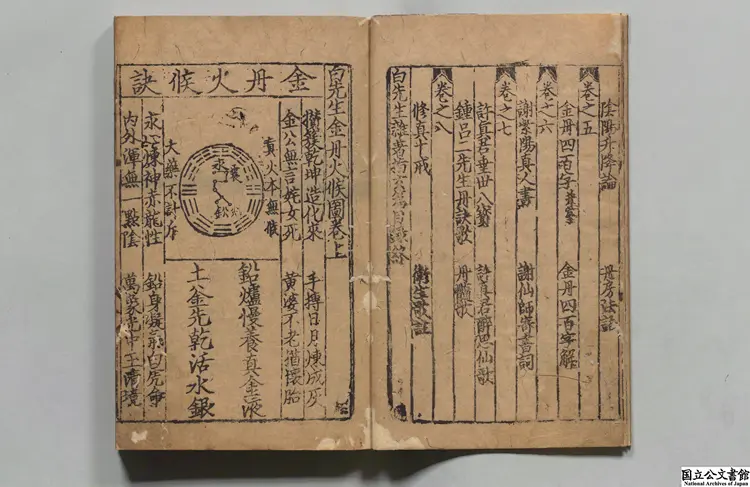 陰陽升降論
丹房法語
卷之五
金丹四百字
金丹四百字解
卷之六
謝紫陽真人書
謝仙師寄書詞
卷之七
許真君垂世八寶
許真君醉思仙歌
鍾呂二先生丹訣歌
丹髓歌
卷之八
修真十戒
衛生歌註
白先生雜著指玄篇目錄終
白先生金丹火候圖卷上
金丹火候訣
攢簇乾坤造化來
手摶日月煉成灰
金公無言姹女死
黃婆不老猶懷胎
真火本無候
大藥不計斤
鉛爐慢養真金液
土釜先乾活水銀
鉛身凝氣白虎命
內外渾無一點陰
萬象光中玉清境
国立公文書館
National Archives of Japan